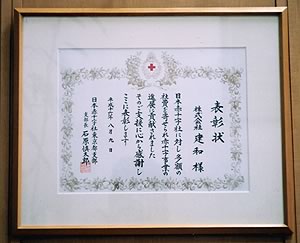 表彰状
株式会社 建和 様
日本赤十字社に対し多額の
社費を寄せられ赤十字事業の
進展に貢献されました
そのご支援に心から感謝し
ここに表彰します
平成十六年八月九日
日本赤十字社東京都支部
支部長 石原慎太郎